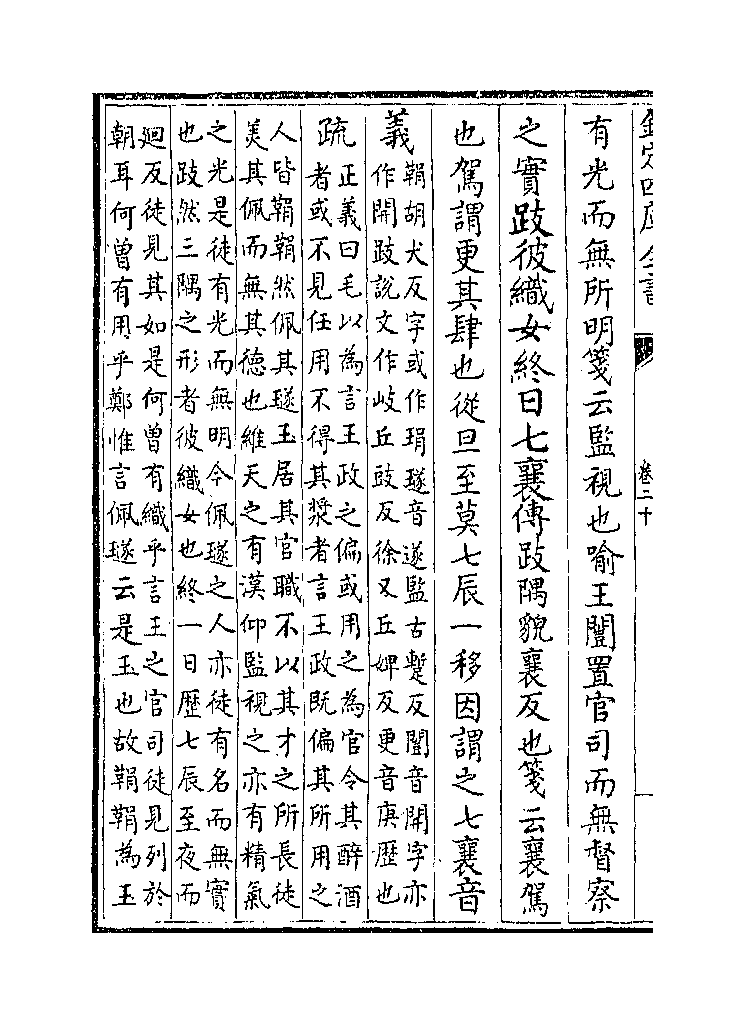 欽定四庫全書
卷二十
有光而無所明箋云監視也喻王闓置官司而無督察
之實跂彼織女終日七襄傳跂隅貌襄反也箋云襄駕
也駕謂更其肆也從旦至莫七辰一移因謂之七襄音
義鞙胡犬反字或作琄璲音遂監古蹔反闓音開字亦
作開跂說文作岐丘豉反徐又丘婢反更音庚歷也
疏正義曰毛以為言王政之偏或用之為官令其醉酒
者或不見任用不得其漿者言王政既偏其所用之
人皆鞙鞙然佩其璲玉居其官職不以其才之所長徒
美其佩而無其德也維天之有漢仰監視之亦有精氣
之光是徒有光而無明今佩璲之人亦徒有名而無實
也跂然三隅之形者彼織女也終一日歷七辰至夜而
廻反徒見其如是何曾有織乎言王之官司徒見列於
朝耳何曾有用乎鄭惟言佩璲云是玉也故鞙鞙為玉